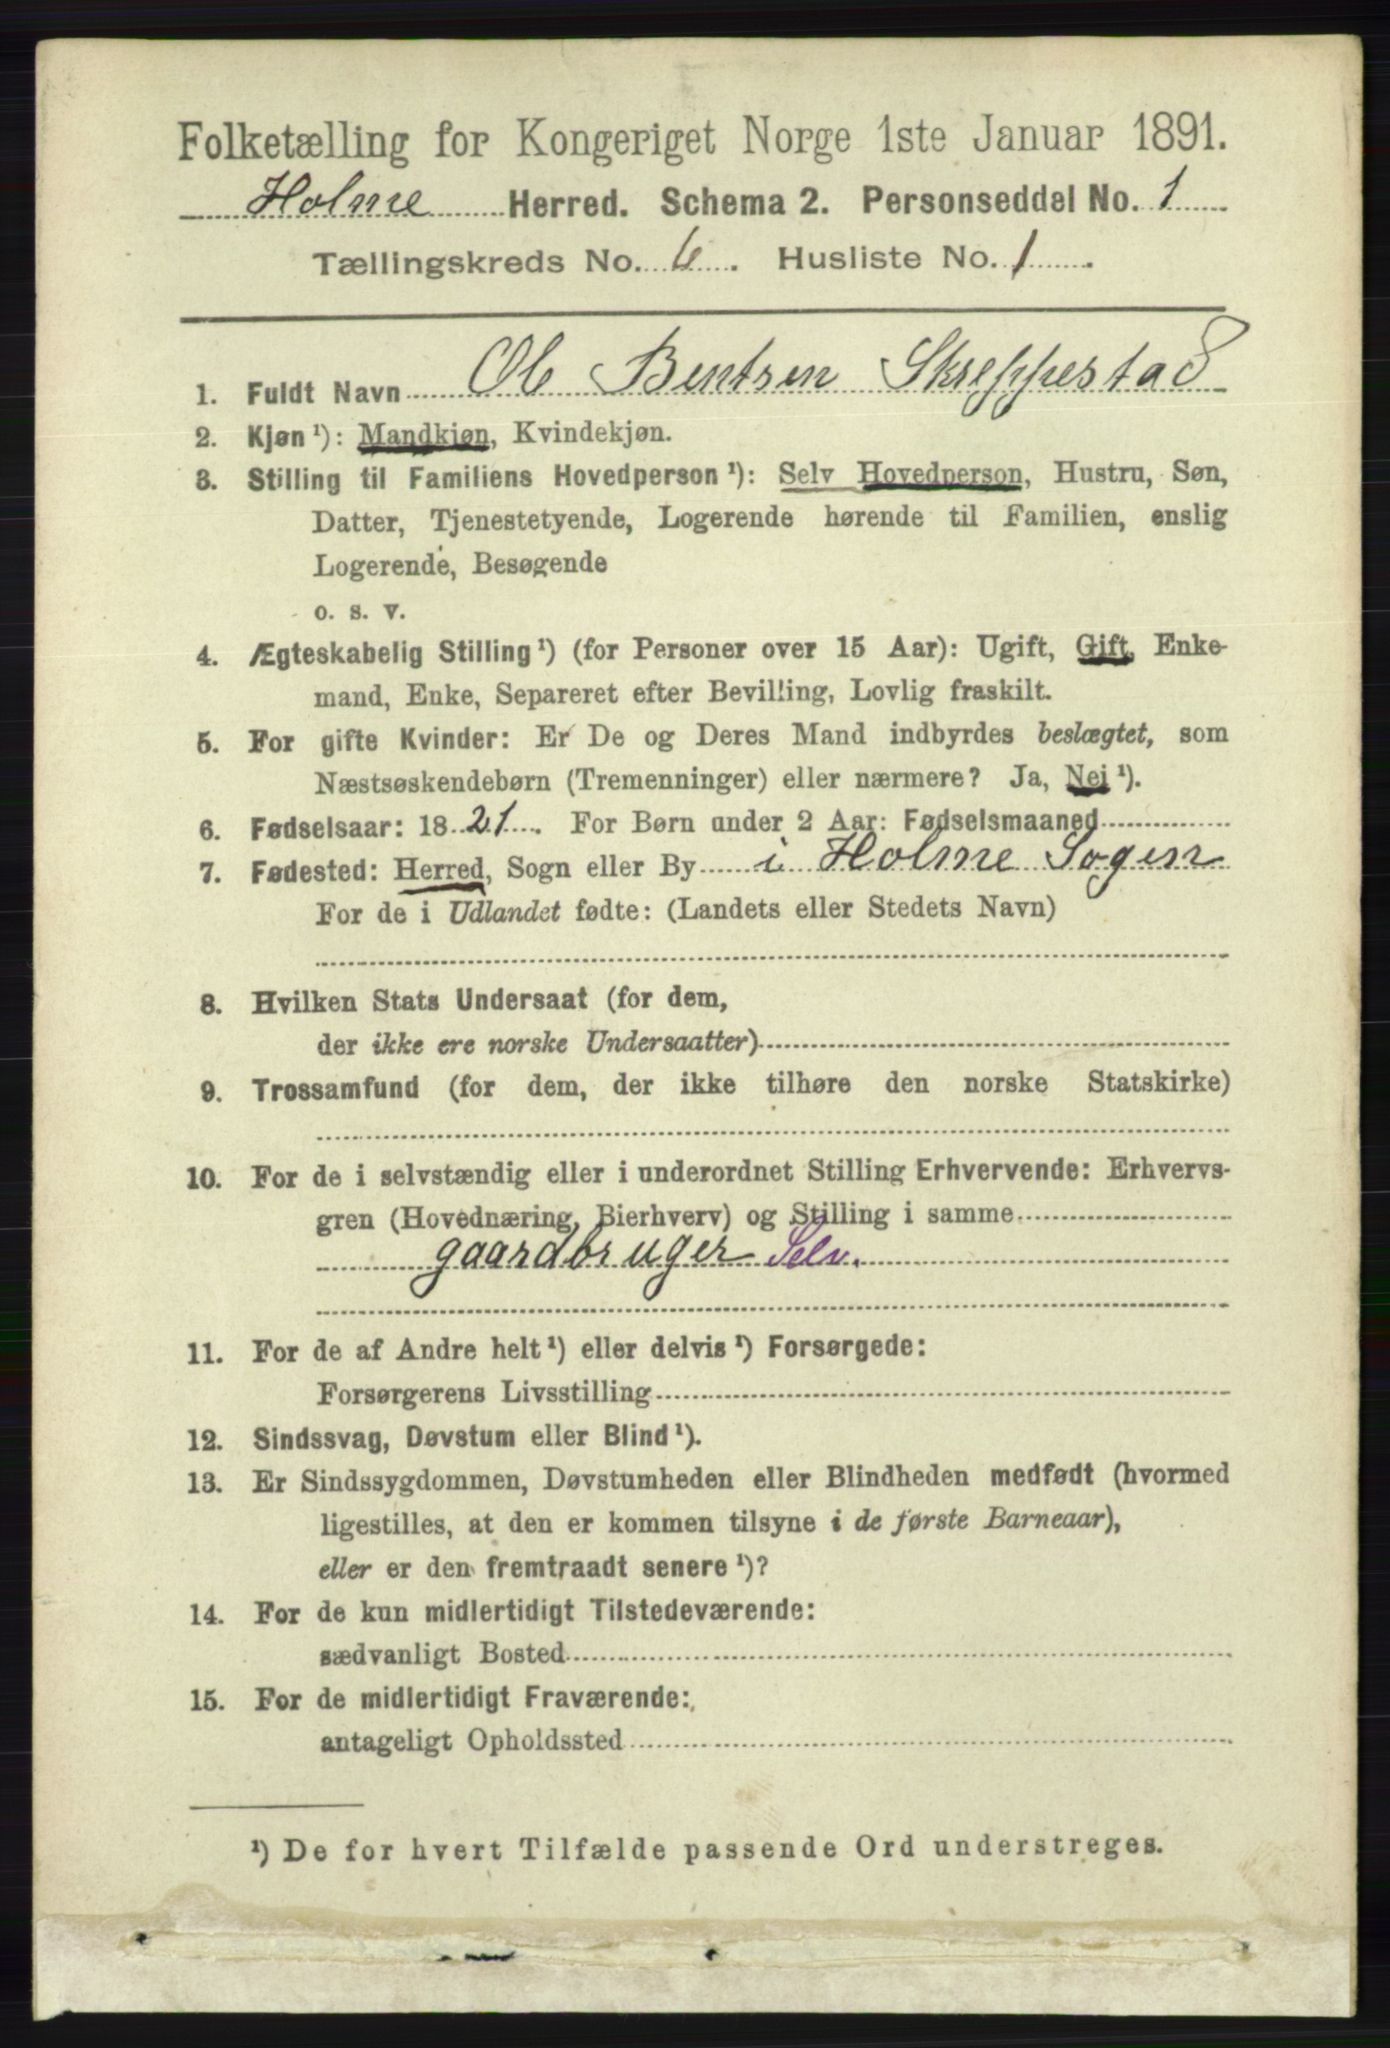 Folketælling for Kongeriget Norge 1ste Januar 1891.
Holme Herred. Schema 2. Personseddel No. 1
Tællingskreds No. 6. Husliste No. 1.
1. Fuldt Navn Ole Bentsen Skreppestad
2. Kjøn¹): Mandkjøn, Kvindekjøn.
3. Stilling til Familiens Hovedperson¹): Selv Hovedperson, Hustru, Søn,
Datter, Tjenestetyende, Logerende hørende til Familien, enslig
Logerende, Besøgende
o. s. v.
4. Ægteskabelig Stilling¹) (for Personer over 15 Aar): Ugift, Gift, Enke-
mand, Enke, Separeret efter Bevilling, Lovlig fraskilt.
5. For gifte Kvinder: Er De og Deres Mand indbyrdes beslægtet, som
Næstsøskendebørn (Tremenninger) eller nærmere? Ja, Nei¹).
6. Fødselsaar: 1821. For Børn under 2 Aar: Fødselsmaaned
7. Fødested: Herred, Sogn eller By i Holme Sogen
For de i Udlandet fødte: (Landets eller Stedets Navn)
8. Hvilken Stats Undersaat (for dem,
der ikke ere norske Undersaatter)
9. Trossamfund (for dem, der ikke tilhøre den norske Statskirke)
10. For de i selvstændig eller i underordnet Stilling Erhvervende: Erhvervs-
gren (Hovednæring, Bierhverv) og Stilling i samme
gaardbruger Selv.
11. For de af Andre helt¹) eller delvis¹) Forsørgede:
Forsørgerens Livsstilling
12. Sindssvag, Døvstum eller Blind¹).
13. Er Sindssygdommen, Døvstumheden eller Blindheden medfødt (hvormed
ligestilles, at den er kommen tilsyne i de første Barneaar),
eller er den fremtraadt senere¹)?
14. For de kun midlertidigt Tilstedeværende:
sædvanligt Bosted
15. For de midlertidigt Fraværende:
antageligt Opholdssted
¹) De for hvert Tilfælde passende Ord understreges.